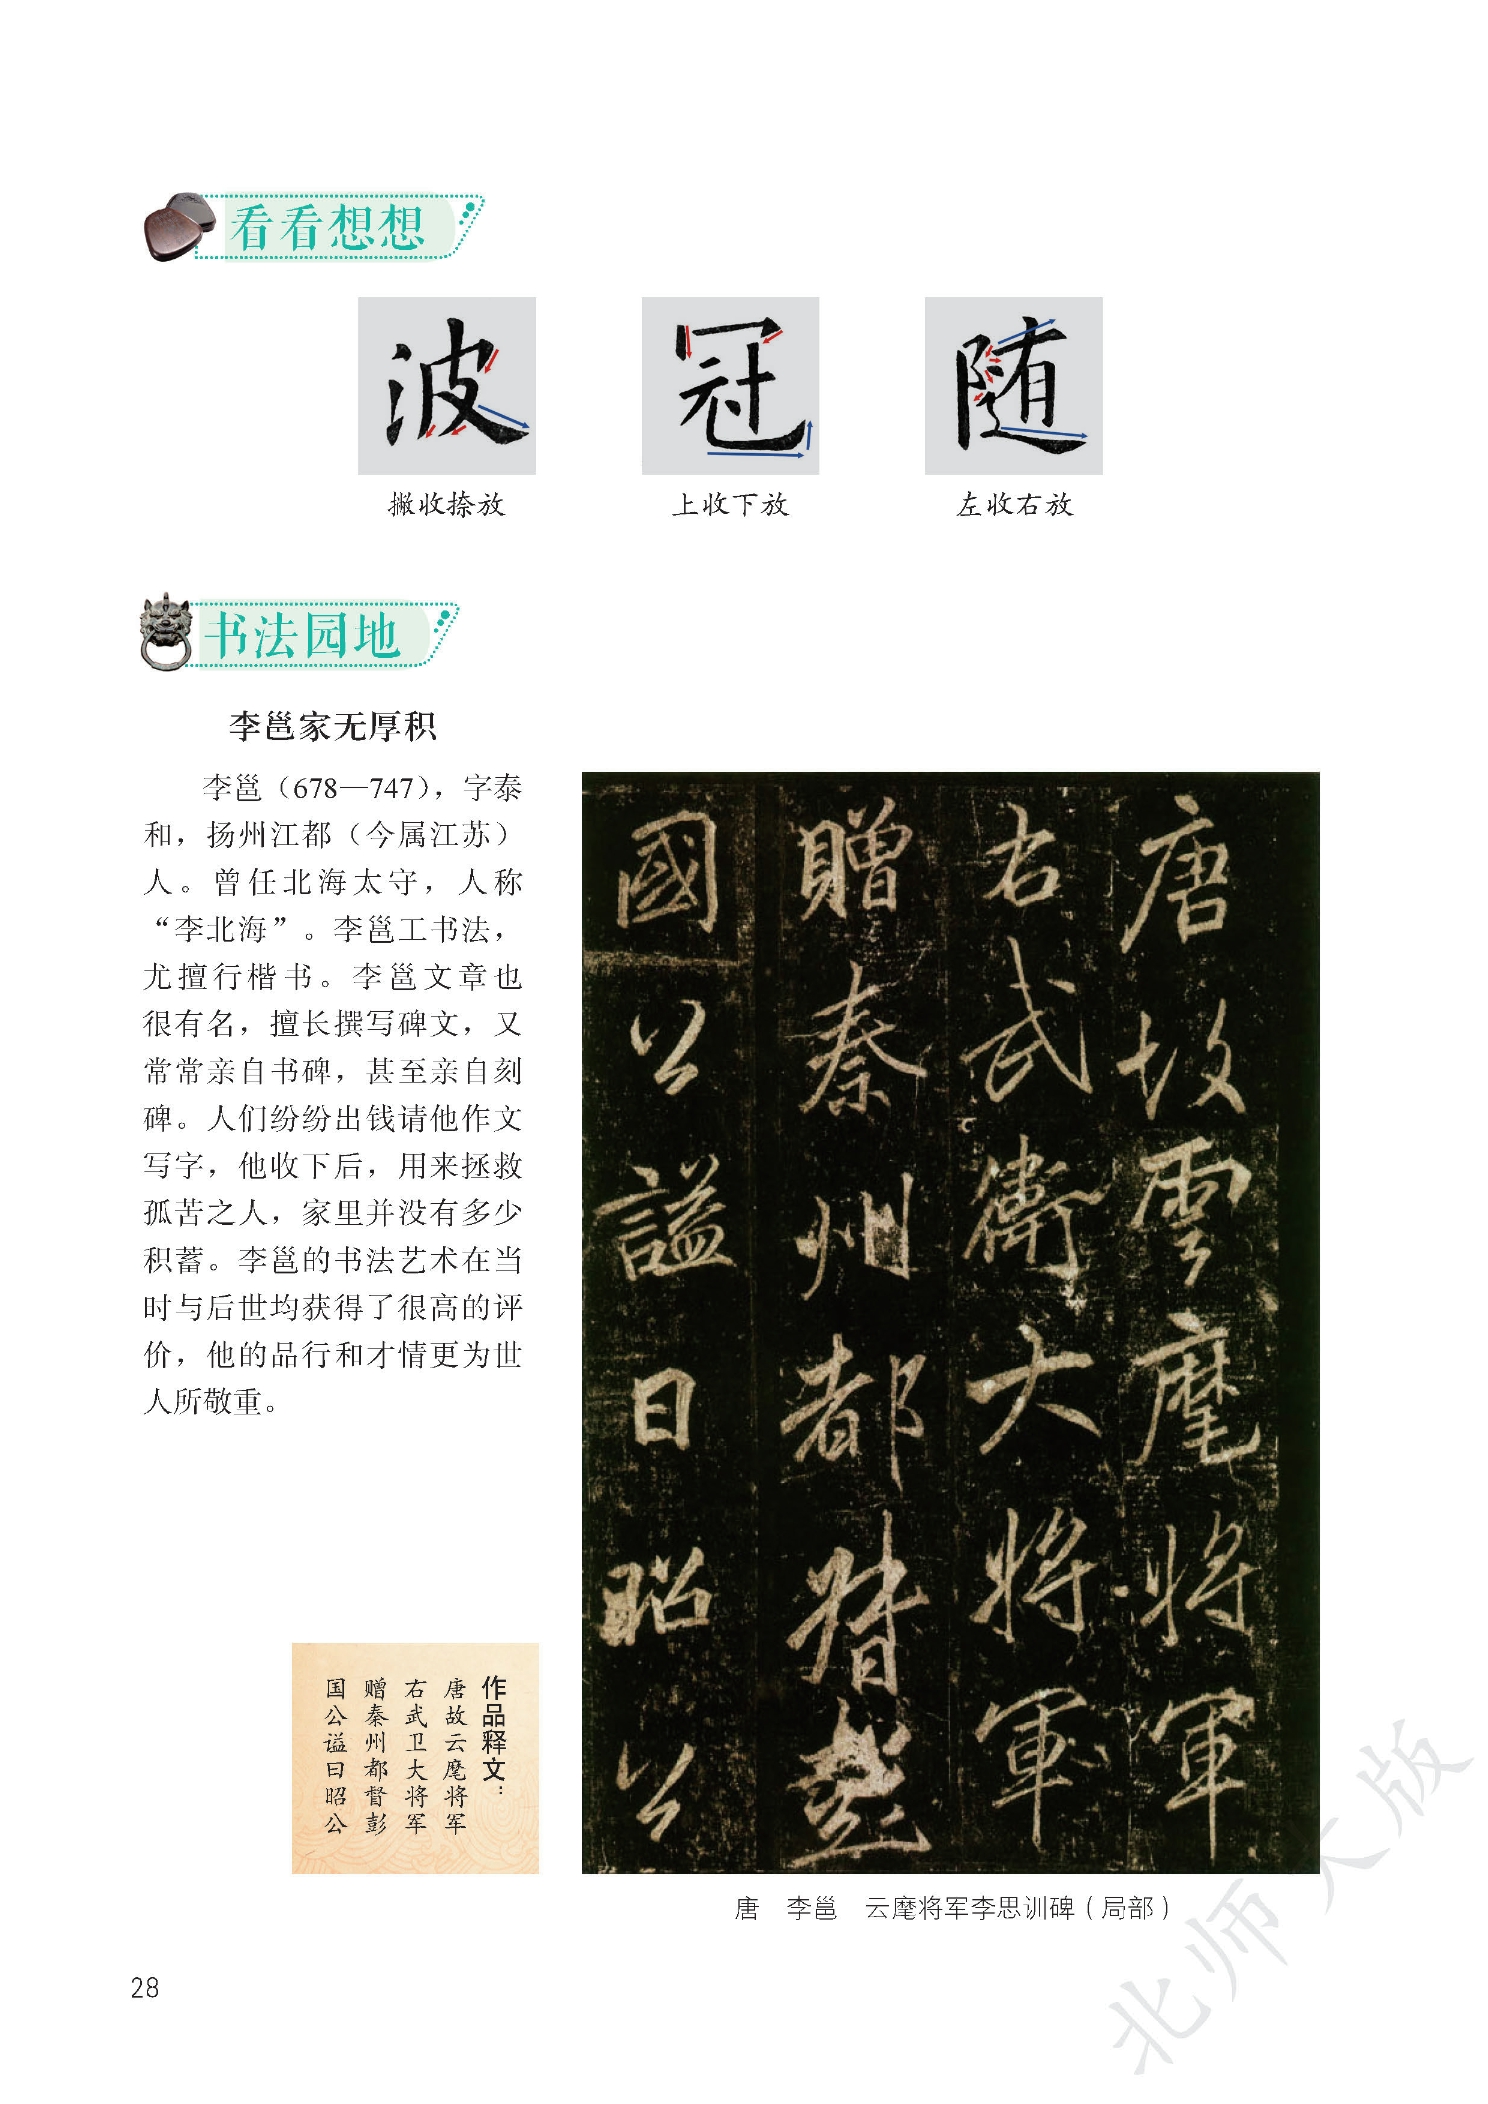 看看想想
波
冠
随
撇收捺放
上收下放
左收右放
书法园地
李邕家无厚积
李邕（678—747），字泰
和，扬州江都（今属江苏）
人。曾任北海太守，人称
“李北海”。李邕工书法，
尤擅行楷书。李邕文章也
很有名，擅长撰写碑文，又
常常亲自书碑，甚至亲自刻
碑。人们纷纷出钱请他作文
写字，他收下后，用来拯救
孤苦之人，家里并没有多少
积蓄。李邕的书法艺术在当
时与后世均获得了很高的评
价，他的品行和才情更为世
人所敬重。
唐故雲麾將軍
右武衛大將軍
贈秦州都督彭
國公謚曰昭公
作品释文：
唐故云麾将军
右武卫大将军
赠秦州都督彭
国公谥曰昭公
唐 李邕 云麾将军李思训碑（局部）
28
北师大版